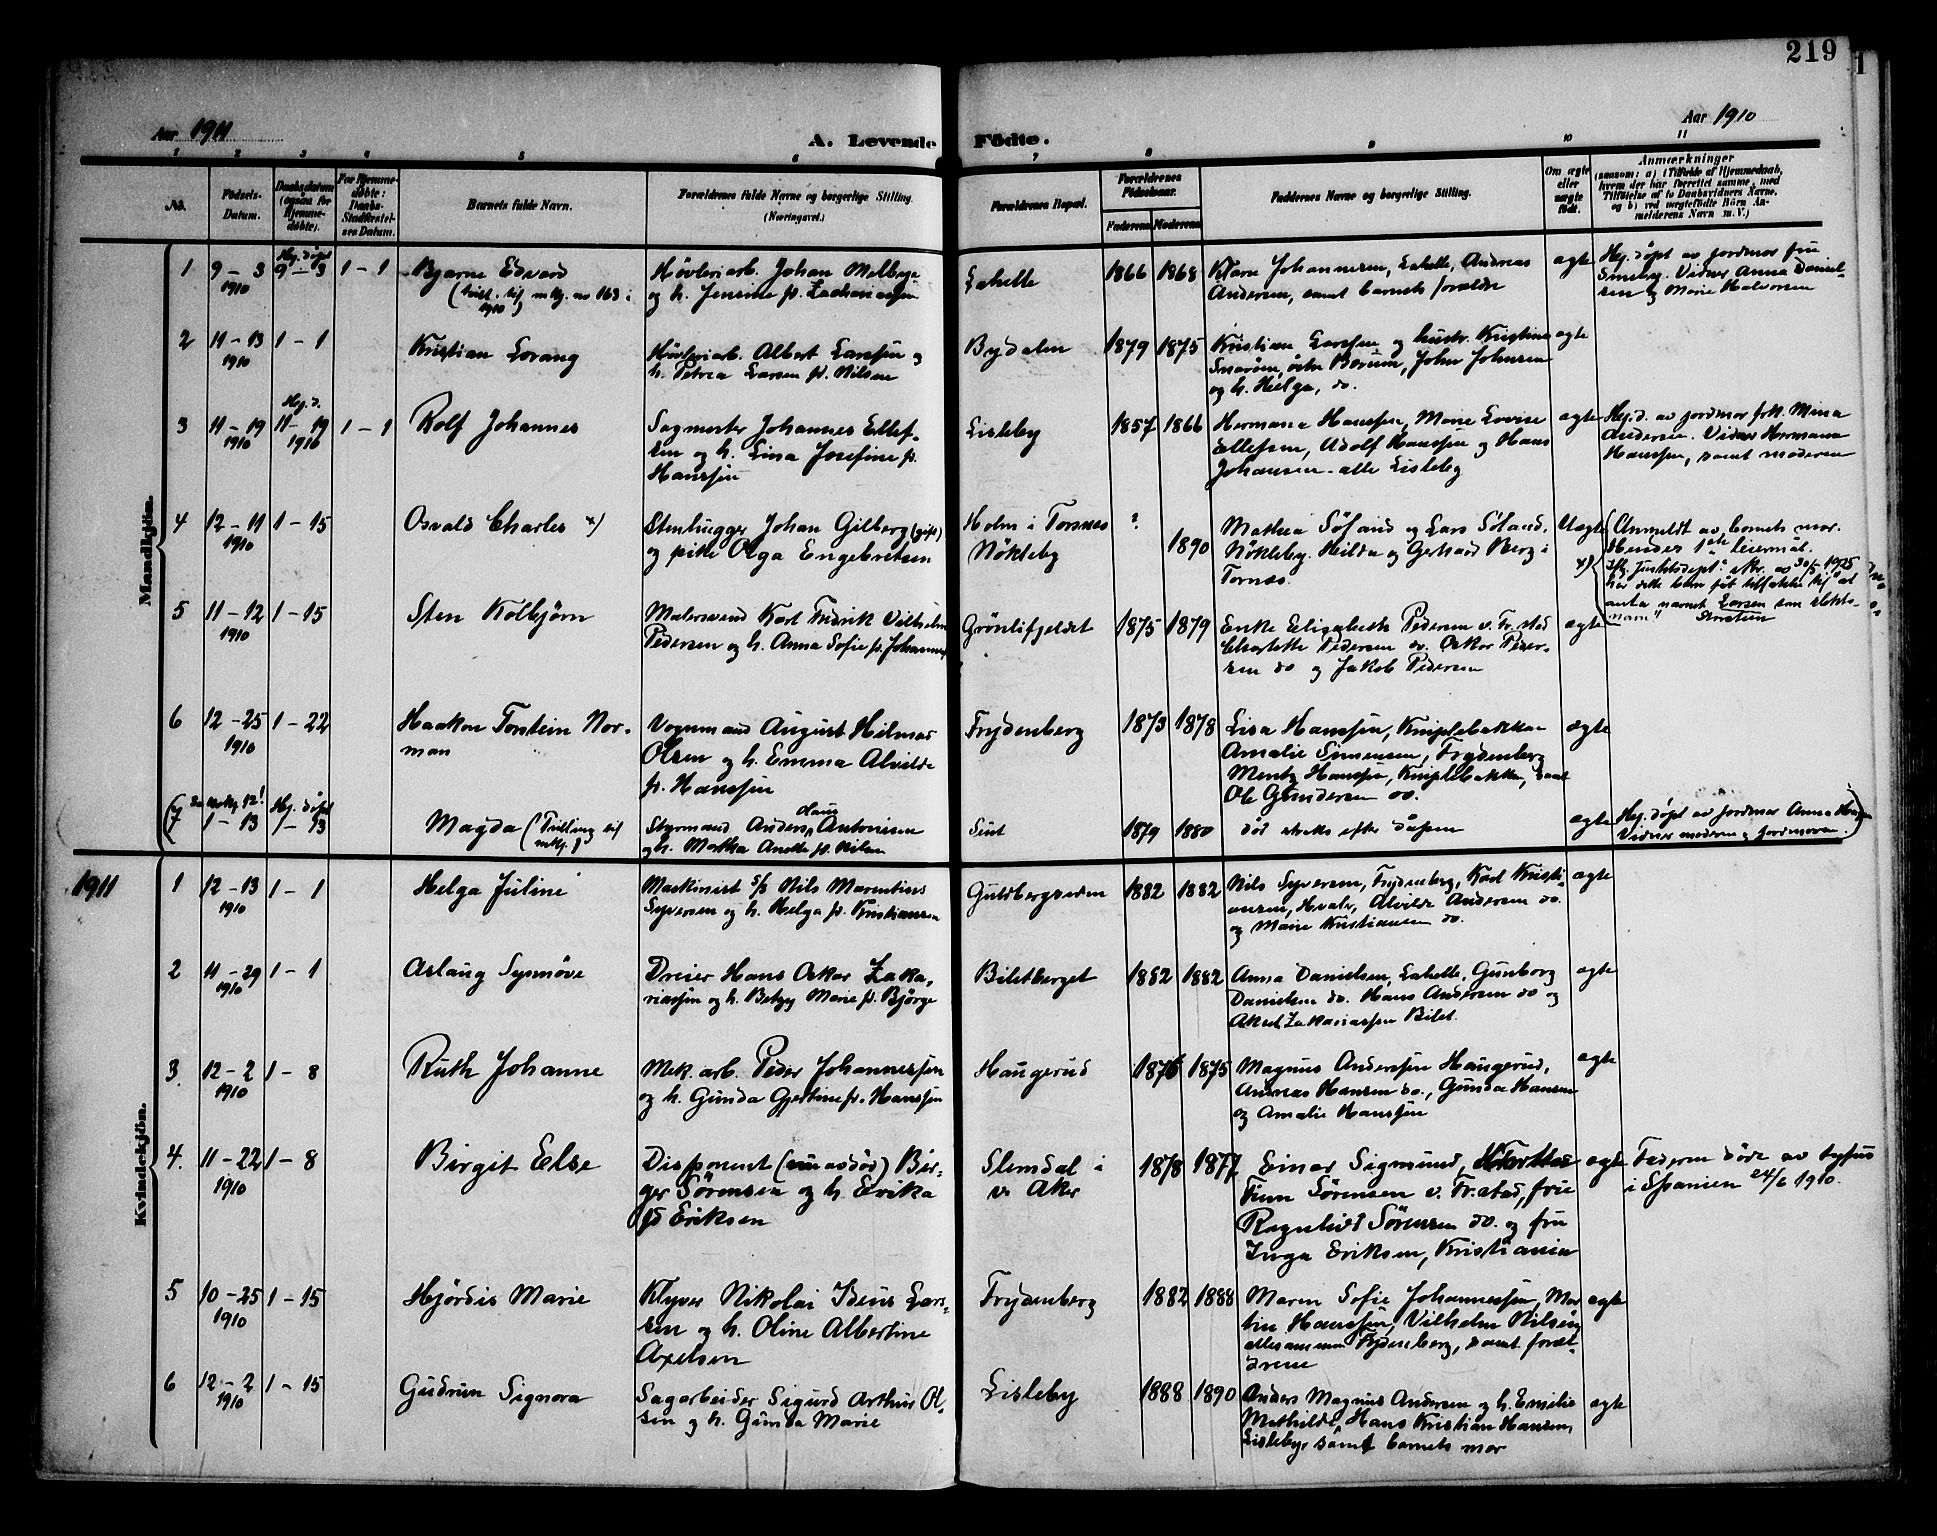 219
Aar 1911
A. Levende Födte.
Aar 1910
1 2 3 4 5 6 7 8 9 10 11
No.
Födsels-
Datum.
Daabsdatum
(ogsaa for
Hjemme-
döbte).
For Hjemme-
døbte:
Daabs-
Stadfæstel-
ses Datum.
Barnets fulde Navn.
Forældrenes fulde Navne og borgerlige Stilling.
(Næringsvei.)
Forældrenes Bopæl.
Forældrenes
Födselsaar.
Faderens Moderens
Faddernes Navne og borgerlige Stilling.
Om ægte
eller
uægte
födt.
Anmærkninger
(saasom: a) i Tilfælde af Hjemmedaab,
hvem der har forrettet samme, med
Tilföielse af to Daabsvidners Navne,
og b) ved uægtefödte Börn An-
melderens Navn m. V.)
Mandkjön.
1
9-3
1910
Hj. døpt
9-3
1-1
Bjarne Edvard
(tvil. til mkj. no 163 i
1910)
Høvleriarb. Johan Melbye
og h. Jensine f. Zachariassen
Lahelle
1866 1868
Klara Johannesen, Lahelle, Andreas
Andersen, samt barnets forældre
ægte
Hj. døpt av jordmor fru
Smeby. Vidner Anna Daniel-
sen og Marie Halvorsen
2
11-13
1910
1-1
Kristian Lorang
Høvleriarb. Albert Larssen og
h. Petrea Larsen f. Nilsen
Bydalen
1879 1875
Kristian Larssen og hustr. Kristine
Snarøen, østre Bærum, John Johnsen
og h. Helga, do.
ægte
3
11-19
1910
Hj. d.
11-19
1910
1-1
Rolf Johannes
Sagmester Johannes Ellef-
sen og h. Lina Josefine f.
Hanssen
Lisleby
1857 1866
Hermana Hanssen, Marie Lovise
Ellefsen, Adolf Hanssen og Hans
Johansen - alle Lisleby
ægte
Hj. d. av jordmor frk. Mina
Andersen. Vidner Hermana
Hanssen, samt moderen
4
12-11
1910
1-15
Osvald Charles x)
Stenhugger Johan Gilberg (gift)
og pike Olga Engebretsen
Holm i Torsnes
Nökleby
?
1890
Mathea Søland og Lars Søland,
Nökleby. Hilda og Gerhard Berg i
Torsnæs.
Uægte
Anmeldt av barnets mor.
Hendes 1ste leiermål.
x) Iflg. Justitsdept. skr. av 30/5 1925
har dette barn fåt tilladelse til at
anta navnet Larsen som slekts-
navn"
5
11-12
1910
1-15
Sten Kolbjørn
Malersvend Karl Fredrik Vilhelm
Pedersen og h. Anna Sofie f. Johannes
Grönlifjeldet
1875 1879
Enke Elisabeth Pedersen v. Fr.stad
Charlotte Pedersen do. Oskar Peder-
sen do og Jakob Pedersen
ægte
6
12-25
1910
1-22
Haakon Torstein Nor-
man
Vognmand August Hilmar
Olsen og h. Emma Alvilde
f. Hanssen
Frydenberg
1873 1878
Lisa Hanssen, Kniplebakken
Amalie Simensen, Frydenberg
Mentz Hanssen, Kniplebakken, samt
Ole Gundersen do.
ægte
(7
Se mkj. 12!
1-13
Hj. døpt
1-13
Magda (Tvilling til
mkj.
Styrmand Anders Hans Antonisen
og h. Martha Anette f. Nilsen
Sent
1879 1880
död straks efter dåpen
ægte
Hj. døpt av jordmor Anna
Vidner moderen og jordmoren.)
1911
Kvindekjön.
1
12-13
1910
1-1
Helga Juline
Maskinist s/s Nils Marentius
Syversen og h. Helga f. Kristiansen
Guldbergseden
1882 1882
Nils Syversen, Frydenberg, Karl Kristi-
ansen, Hvaler, Alvilde Andersen do.
og Marie Kristiansen do.
ægte
2
11-29
1910
1-1
Aslaug Synnøve
Dreier Hans Oskar Zaka-
riassen og h. Betzy Marie f. Bjørge
Biletberget
1882 1882
Anna Danielsen, Lahelle, Gunborg
Danielsen do. Hans Andersen do og
Aksel Zakariassen Bilet.
ægte
3.
12-2
1910
1-8
Ruth Johanne
Mek. arb. Peder Johannessen
og h. Gunda Gjertine f. Hanssen
Haugerud
1876 1875
Magnus Anderssen Haugerud,
Andreas Hansen do., Gunda Hansen
og Amalie Hanssen
ægte
4.
11-22
1910
1-8
Birgit Else
Disponent (nu død) Bir-
ger Sörensen og h. Erika
fd Eriksen
Slemdal i
v. Aker
1878 1877
Einar Sigmund,
Finn Sørensen v. Fr.stad, frue
Ragnhild Sörensen do. og fru
Inga Eriksen, Kristiania
ægte
Faderen døde av tyfus
i Spanien 24/6 1910.
5
10-25
1910
1-15
Hjördis Marie
Klyver Nikolai Idius Lars-
sen og h. Oline Albertine
Axelsen
Frydenberg
1882 1888
Maren Sofie Johannessen, Mar
tin Hanssen, Vilhelm Nilsen,
allesammen Frydenberg, samt foræl-
drene
ægte
6
12-2
1910
1-15
Gudrun Signora
Sagarbeider Sigurd Arthur Ol-
sen og h. Gunda Marie
Lisleby
1888 1890
Anders Magnus Andersen og h. Emilie
Mathilde, Hans Kristian Hansen,
Lisleby, samt barnets mor
ægte